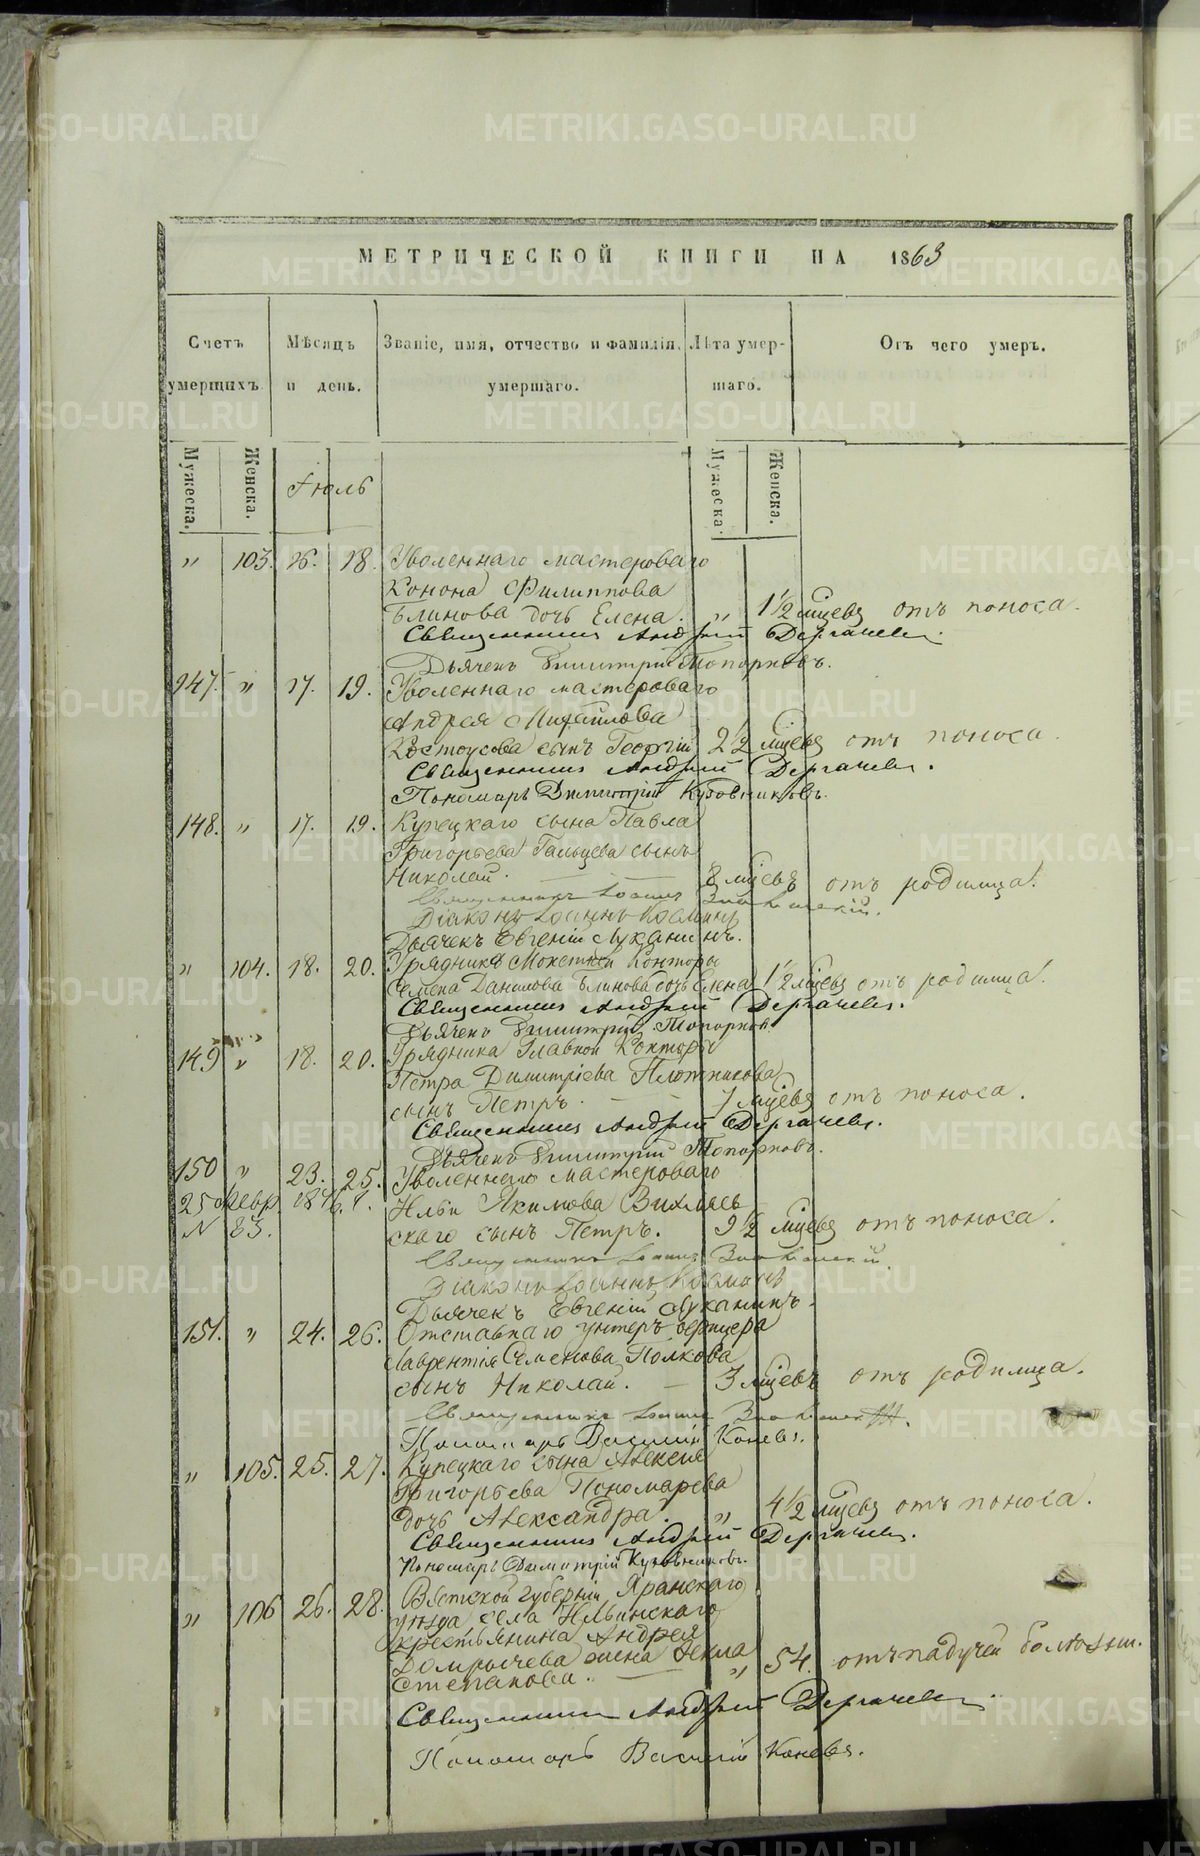 МЕТРИЧЕСКОЙ КНИГИ НА 1863
Счетъ умершихъ.
Мѣсяцъ и день.
Званіе, имя, отчество и фамилія умершаго.
Лѣта умершаго.
Отъ чего умеръ.
Мужеска. Женска.
Іюль
Мужеска. Женска.
" 103. 16. 18. Уволеннаго мастероваго
Конона Филиппова
Блинова дочь Елена. " 1½ мѣсца отъ поноса.
Священникъ Андрей Дергачевъ.
Дьячекъ Димитрій Топорковъ.
147. " 17. 19. Уволеннаго мастероваго
Андрея Михайлова
Костоусова сынъ Георгій 2½ мѣсца отъ поноса.
Священникъ Андрей Дергачевъ.
Пономарь Димитрій Кузовниковъ.
148. " 17. 19. Купецкаго сына Павла
Григорьева сынъ
Николай. 8 мѣсцъ отъ родимца.
Священникъ Іоаннъ
Діаконъ Іоаннъ Косминъ
Дьячекъ Евгеній Луканинъ.
" 104. 18. 20. Урядника Конторы
Семена Данилова Блинова дочь Елена 1½ мѣсца отъ родимца.
Священникъ Андрей Дергачевъ.
Дьячекъ Димитрій Топорковъ
149 " 18. 20. Урядника Главной Конторы
Петра Димитріева Плотникова
сынъ Петръ. 7 мѣсцъ отъ поноса.
Священникъ Андрей Дергачевъ.
Дьячекъ Димитрій Топорковъ.
150 " 23. 25. Уволеннаго мастероваго
25 Февр.
Ильи Якимова
N 83.
скаго сынъ Петръ. 9½ мѣсца отъ поноса.
Священникъ Іоаннъ
Діаконъ Іоаннъ Косминъ
Дьячекъ Евгеній Луканинъ.
151. " 24. 26. Отставнаго унтеръ офицера
Лаврентія Семенова Полкова
сынъ Николай. — 3 мѣсцъ отъ родимца.
Священникъ Іоаннъ
Пономарь Василій Коневъ.
" 105. 25. 27. Купецкаго сына Алексея
Григорьева Пономарева
дочь Александра. " 4½ мѣсца отъ поноса.
Священникъ Андрей Дергачевъ.
Пономарь Димитрій Кузовниковъ.
" 106 26. 28. Вятской губерніи Яранскаго
уѣзда села Ильинскаго
крестьянина Андрея
жена Фекла
Степанова. — " 54. отъ падучей болѣзни.
Священникъ Андрей Дергачевъ.
Пономарь Василій Коневъ.
METRIKI.GASO-URAL.RU